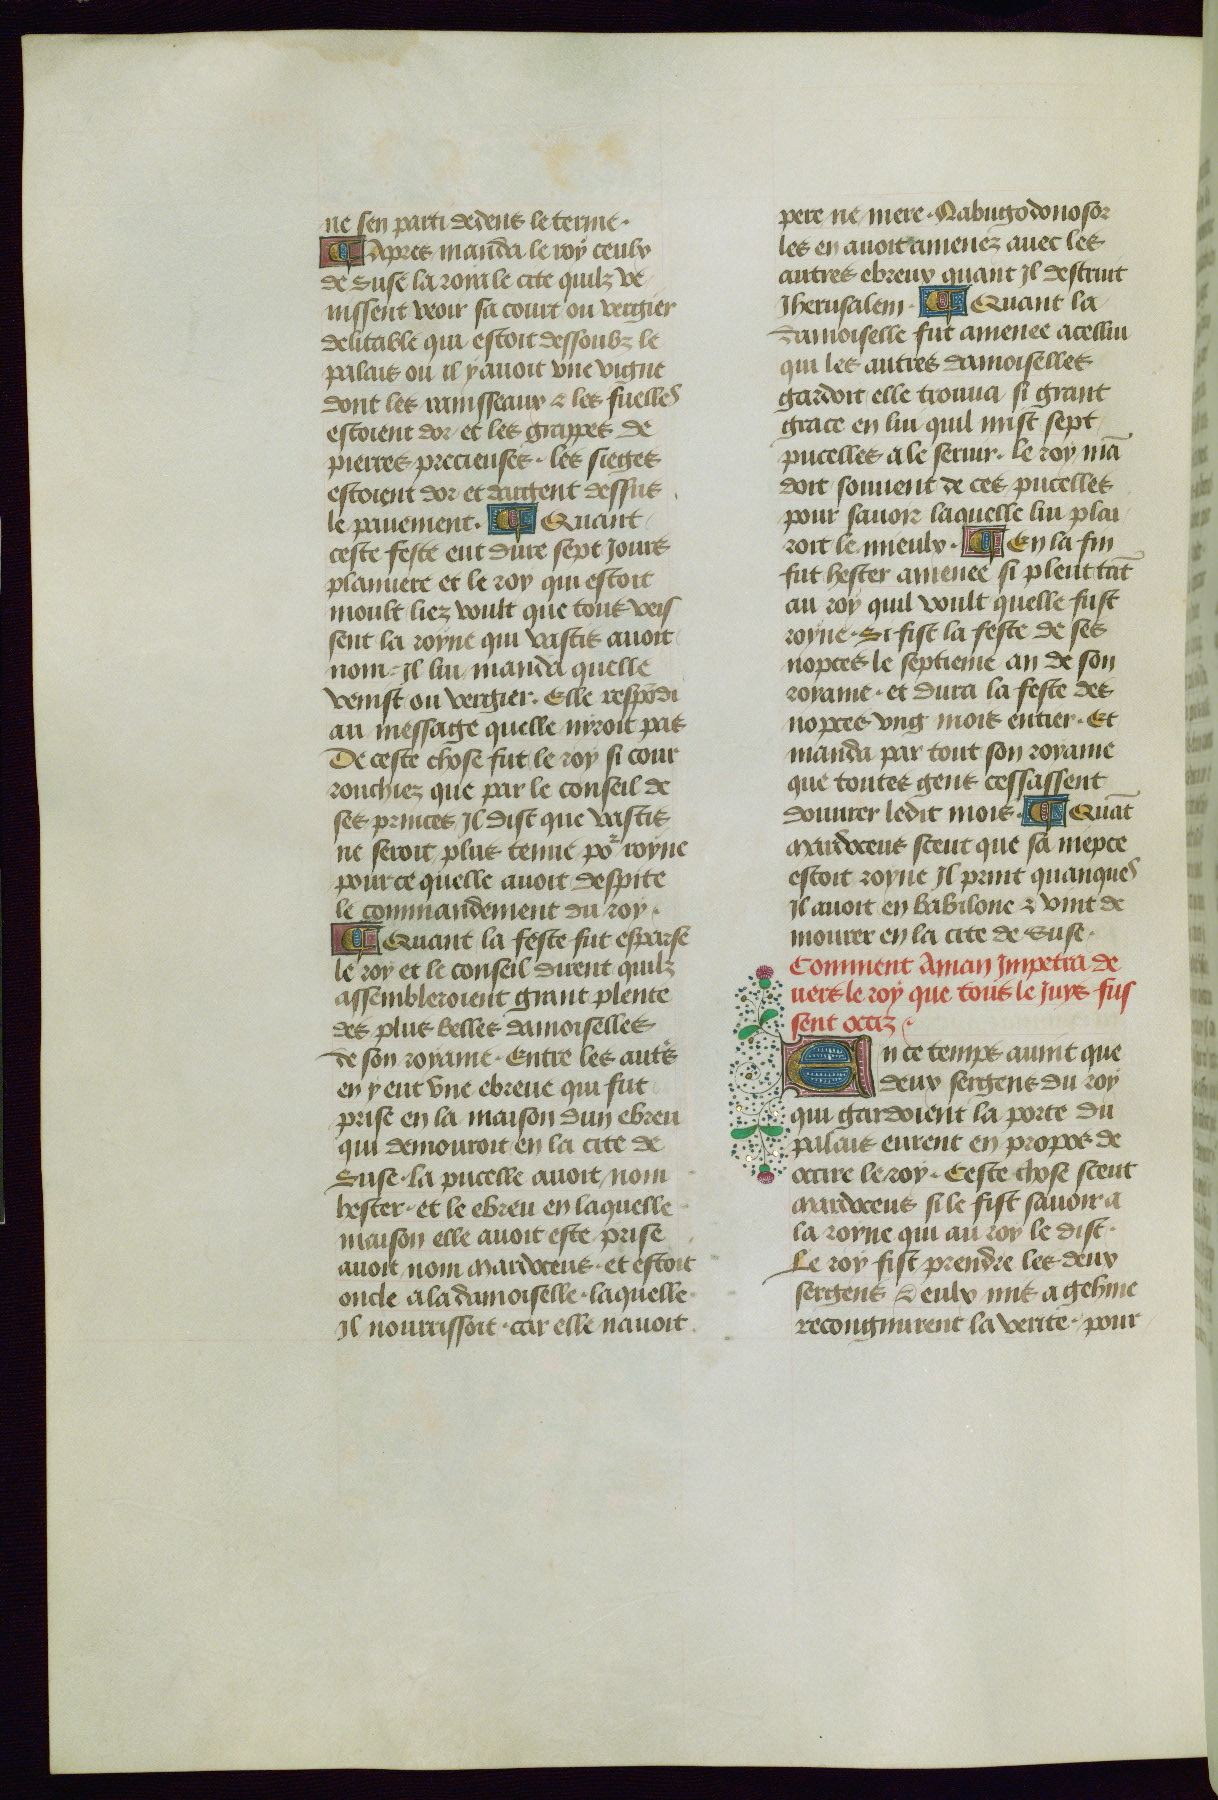 ne sen parti dedens le terme·
¶ Apres manda le roy ceulx
de Suse la roiale cite quilz ve
nissent veoir sa court ou vergier
delitable qui estoit dessoubz le
palais ou il y auoit vne vigne
dont les rainsseaux & les fuelles
estoient dor et les grappes de
pierres precieuses· les sieges
estoient dor et dargent dessus
le pauement· ¶ Quant
ceste feste eut dure sept Jours
planiere et le roy qui estoit
moult liez voult que tous veis
sent la royne qui vastis auoit
nom· Il lui manda quelle
venist ou vergier· Elle respōdi
au message quelle nyroit pas
De ceste chose fut le roy si cour
rouchiez que par le conseil de
ses princes Il dist que vastis
ne seroit plus tenue poʳ royne
pource quelle auoit despite
le commandement du roy·
¶ Quant la feste fut esparse
le roy et le conseil dirent quilz
assembleroient grant plente
des plus belles damoiselles
de son royame· Entre les aut̛s
en y eut vne ebreue qui fut
prise en la maison dun ebreu
qui demouroit en la cite de
Suse· la pucelle auoit nom
hester· et le ebreu en laquelle
maison elle auoit este prise
auoit nom Mardoceus· et estoit
oncle a la damoiselle· laquelle
Il nourrissoit· car elle nauoit
pere ne mere· Nabugodonosor
les en auoit amenez auec les
autres ebreux quant Il destruit
Jherusalem· ¶ Quant la
damoiselle fut amenee a cellui
qui les autres damoiselles
gardoit elle trouua si grant
grace en lui quil mist sept
pucelles a le seruir· le roy mā
doit souuent de ces pucelles
pour sauoir laquelle lui plai
roit le mieulx· ¶ En la fin
fut hester amenee si pleut tāt
au roy quil voult quelle fust
royne· Si fist la feste de ses
nopces le septieme an de son
royame· et dura la feste des
nopces vng mois entier· Et
manda par tout son royame
que toutes gens cessassent
douurer ledit mois· ¶ Quāt
Mardoceus sceut que sa niepce
estoit royne Il print quanques
Il auoit en babilone & vint de
mourer en la cite de Suse·
Comment Aman Impetra de
uers le roy que tous le Juys fus
sent occiz
En ce temps auint que
deux sergens du roy
qui gardoient la porte du
palais eurent en propos de
occire le roy· Ceste chose sceut
Mardoceus si le fist sauoir a
la royne qui au roy le dist·
Le roy fist prendre les deux
sergens & eulx mis a gehine
recongnurent la verite· pour